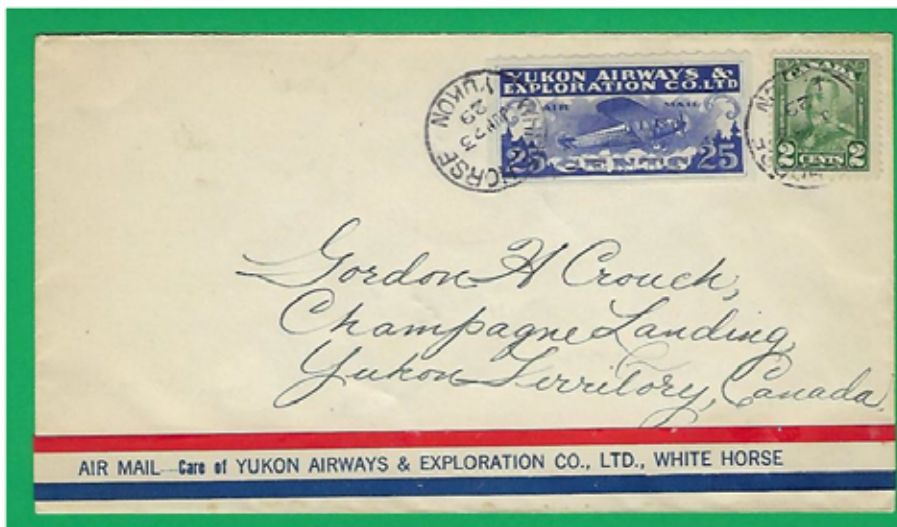 YUKON AIRWAYS &
EXPLORATION CO. LTD
AIR MAIL
25 CENTS 25
CANADA
2 CENTS 2
HORSE YUKON
29
Gordon H Crouch,
Champagne Landing,
Yukon Territory, Canada.
AIR MAIL—Care of YUKON AIRWAYS & EXPLORATION CO., LTD., WHITE HORSE